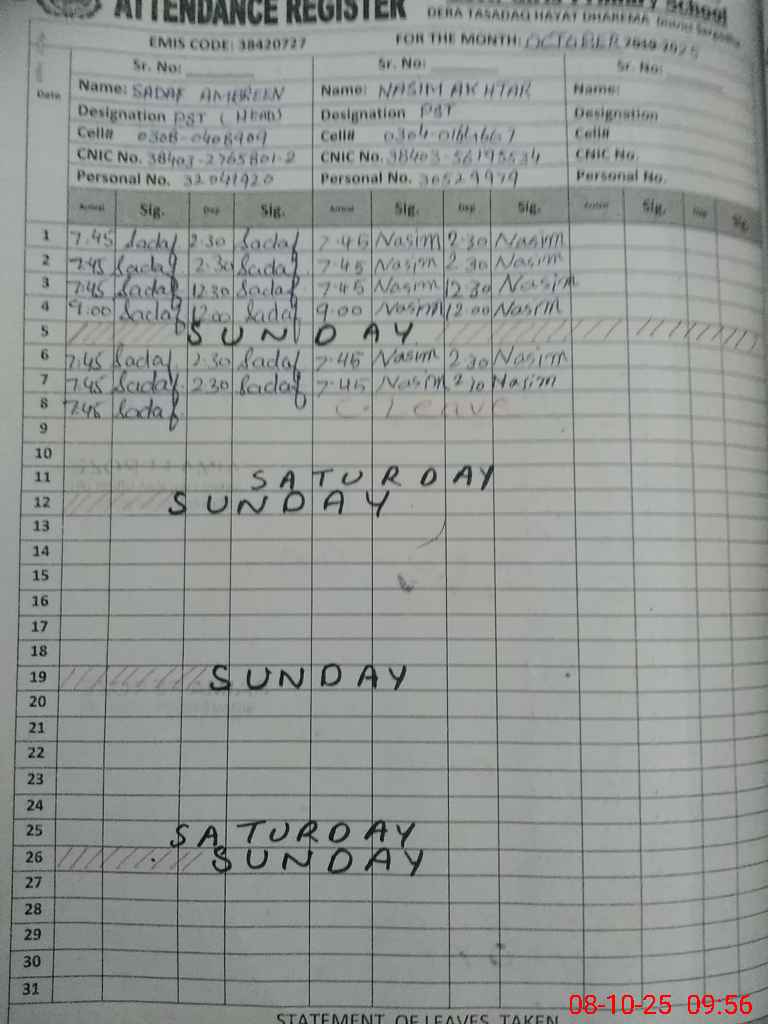 ATTENDANCE REGISTER
School
DERA TASADAQ HAYAT DHAREMA
EMIS CODE: 38420727 FOR THE MONTH: OCTOBER 2025
Sr. No: Sr. No: Sr. No:
Date Name: SADAF AMBREEN Name: NASIM AKHTAR Name:
Designation PST (HEAD) Designation PST Designation
Cell# 0308-0408909 Cell# Cell#
CNIC No. 38403-2765801-2 CNIC No. CNIC No.
Personal No. 32041920 Personal No. 30529979 Personal No.
Arrival Sig. Dep Sig. Arrival Sig. Dep Sig. Arrival Sig. Dep Sig.
1 7.45 Sadaf 2.30 Sadaf 7.45 Nasim 2.30 Nasim
2 7.45 Sadaf 2.30 Sadaf 7.45 Nasim 2.30 Nasim
3 7.45 Sadaf 12.30 Sadaf 7.45 Nasim 12.30 Nasim
4 9.00 Sadaf 12.00 Sadaf 9.00 Nasim 12.00 Nasim
5 SUNDAY
6 7.45 Sadaf 2.30 Sadaf 7.45 Nasim 2.30 Nasim
7 7.45 Sadaf 2.30 Sadaf 7.45 Nasim 2.30 Nasim
8 7.45 Sadaf C. Leave
9
10
11 SATURDAY
12 SUNDAY
13
14
15
16
17
18
19 SUNDAY
20
21
22
23
24
25 SATURDAY
26 SUNDAY
27
28
29
30
31
STATEMENT OF LEAVES TAKEN
08-10-25 09:56